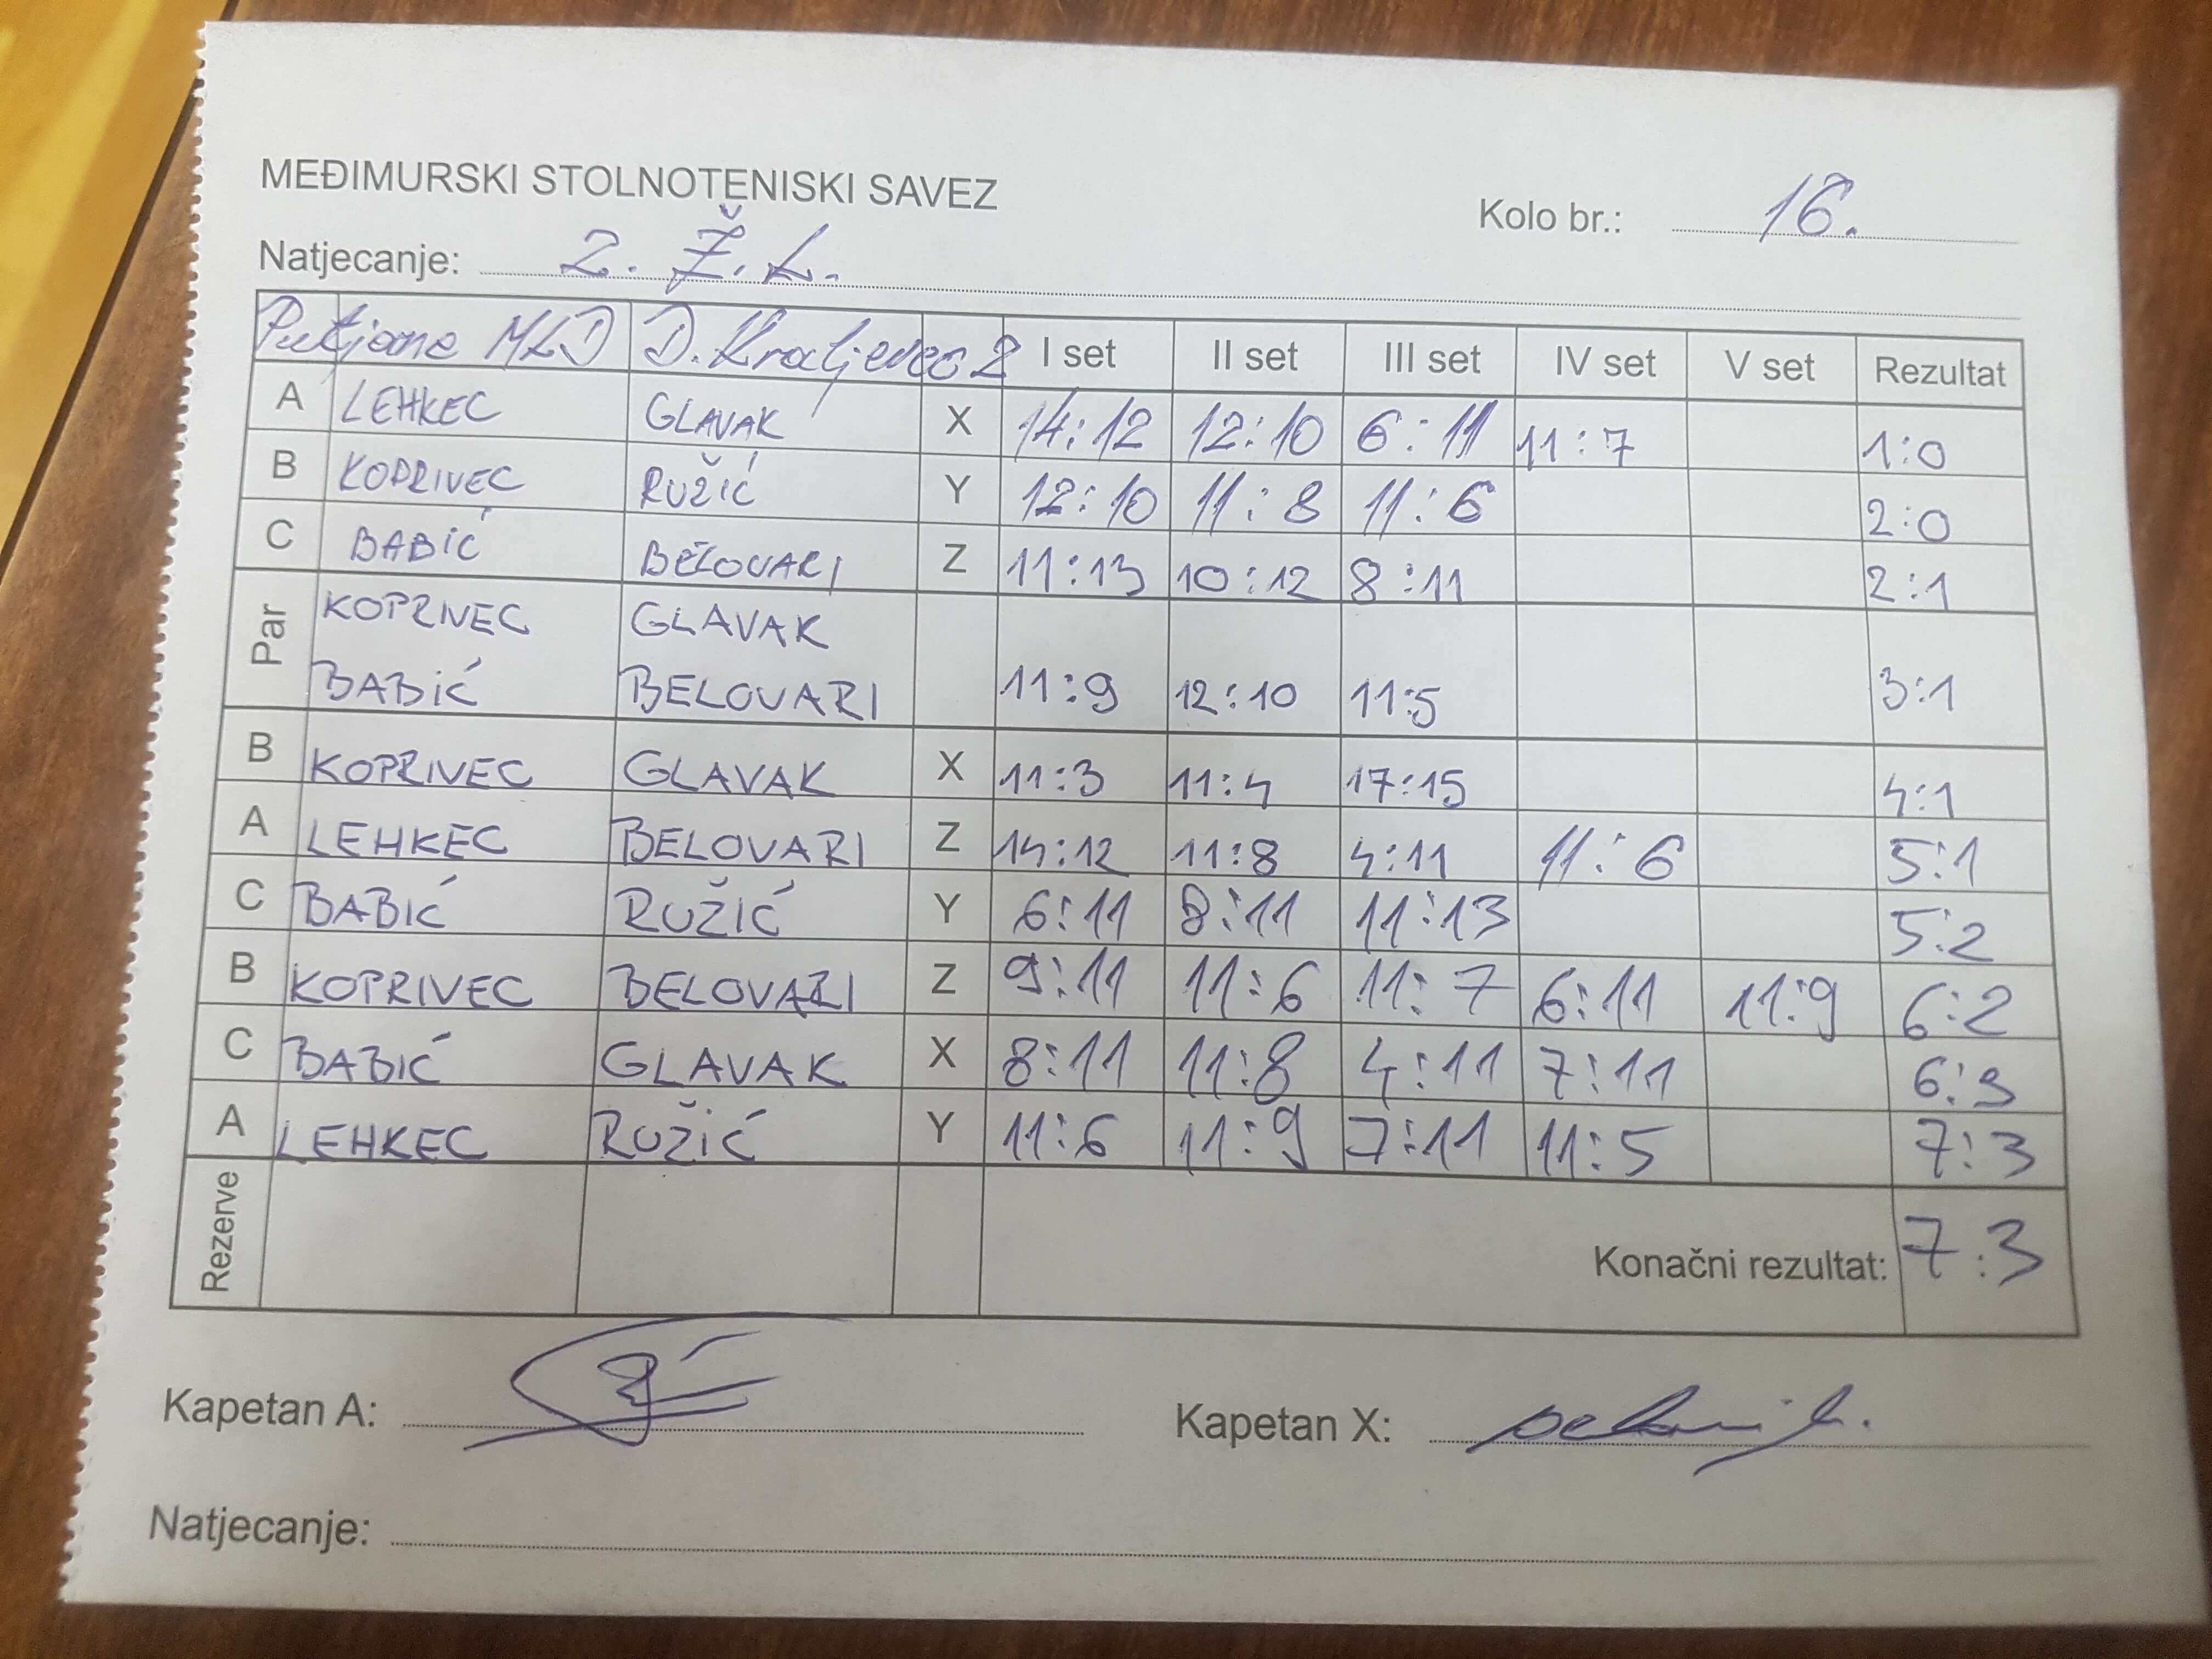 MEĐIMURSKI STOLNOTENISKI SAVEZ
Kolo br.: 16.
Natjecanje: 2. Ž.L.
Putjane MLD D. Kraljevec 2 I set II set III set IV set V set Rezultat
A LEHKEC GLAVAK X 14:12 12:10 6:11 11:7 1:0
B KOPRIVEC RUŽIĆ Y 12:10 11:8 11:6 2:0
C BABIĆ BELOVARI Z 11:13 10:12 8:11 2:1
Par KOPRIVEC GLAVAK
BABIĆ BELOVARI 11:9 12:10 11:5 3:1
B KOPRIVEC GLAVAK X 11:3 11:4 17:15 4:1
A LEHKEC BELOVARI Z 14:12 11:8 4:11 11:6 5:1
C BABIĆ RUŽIĆ Y 6:11 8:11 11:13 5:2
B KOPRIVEC BELOVARI Z 9:11 11:6 11:7 6:11 11:9 6:2
C BABIĆ GLAVAK X 8:11 11:8 4:11 7:11 6:3
A LEHKEC RUŽIĆ Y 11:6 11:9 7:11 11:5 7:3
Rezerve Konačni rezultat: 7:3
Kapetan A: Kapetan X:
Natjecanje: